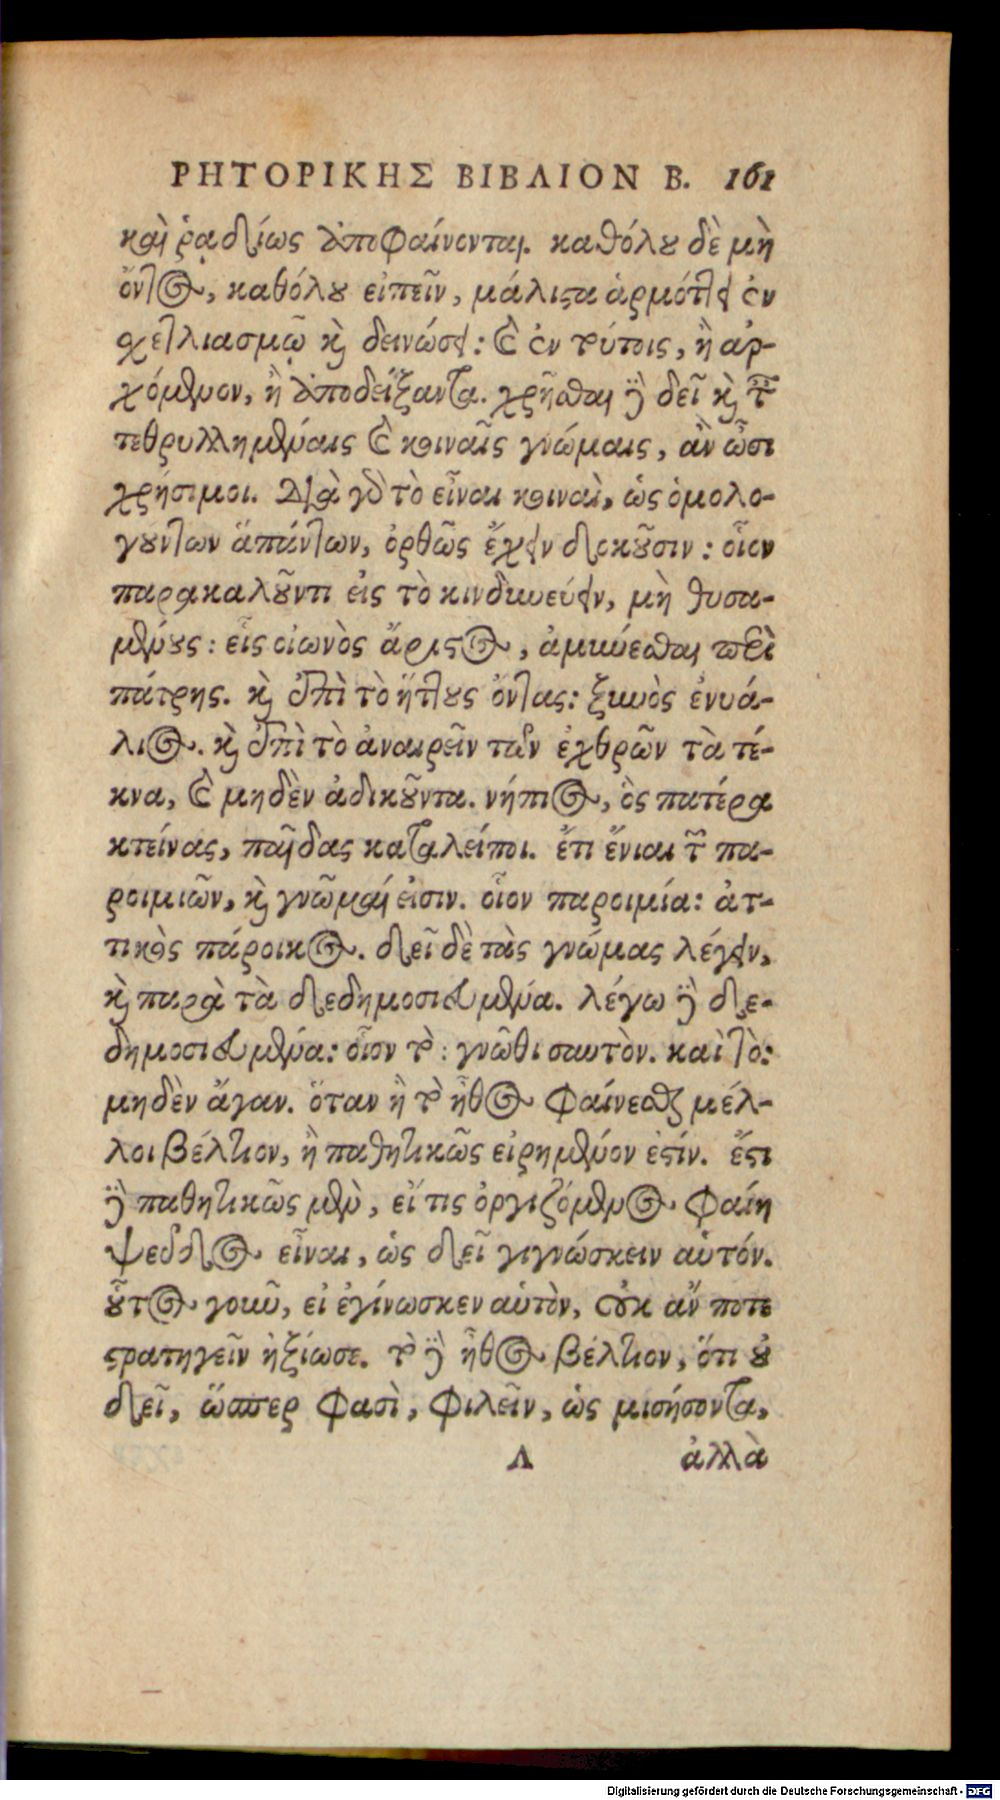 ΡΗΤΟΡΙΚΗΣ ΒΙΒΛΙΟΝ Β. 161
καὶ ῥᾳδίως ἀποφαίνονται. καθόλου δὲ μὴ
ὄντος, καθόλου εἰπεῖν, μάλιστα ἁρμόττει ἐν
σχετλιασμῷ καὶ δεινώσει: καὶ ἐν τούτοις, ἢ ἀρ-
χόμενον, ἢ ἀποδείξαντα. χρῆσθαι δὲ δεῖ καὶ ταῖς
τεθρυλλημέναις καὶ κοιναῖς γνώμαις, ἂν ὦσι
χρήσιμοι. Διὰ γὰρ τὸ εἶναι κοιναὶ, ὡς ὁμολο-
γούντων ἁπάντων, ὀρθῶς ἔχειν δοκοῦσιν: οἷον
παρακαλοῦντι εἰς τὸ κινδυνεύειν, μὴ θυσα-
μένους: εἷς οἰωνὸς ἄριστος, ἀμύνεσθαι περὶ
πάτρης. καὶ ἐπὶ τὸ ἥττους ὄντας: ξυνὸς ἐνυά-
λιος. καὶ ἐπὶ τὸ ἀναιρεῖν τῶν ἐχθρῶν τὰ τέ-
κνα, καὶ μηδὲν ἀδικοῦντα. νήπιος, ὃς πατέρα
κτείνας, παῖδας καταλείποι. ἔτι ἔνιαι τῶν πα-
ροιμιῶν, καὶ γνῶμαί εἰσιν. οἷον παροιμία: ἀτ-
τικὸς πάροικος. δεῖ δὲ τὰς γνώμας λέγειν,
καὶ παρὰ τὰ δεδημοσιευμένα. λέγω δὲ δε-
δημοσιευμένα: οἷον τὸ: γνῶθι σαυτὸν. καὶ τὸ:
μηδὲν ἄγαν. ὅταν ἢ τὸ ἦθος φαίνεσθαι μέλ-
λοι βέλτιον, ἢ παθητικῶς εἰρημένον ἐστίν. ἔστι
δὲ παθητικῶς μὲν, εἴ τις ὀργιζόμενος φαίη
ψεῦδος εἶναι, ὡς δεῖ γιγνώσκειν αὑτόν.
οὗτος γοῦν, εἰ ἐγίνωσκεν αὑτὸν, οὐκ ἄν ποτε
στρατηγεῖν ἠξίωσε. τὸ δὲ ἦθος βέλτιον, ὅτι οὐ
δεῖ, ὥσπερ φασὶ, φιλεῖν, ὡς μισήσοντα,
Λ ἀλλὰ
Digitalisierung gefördert durch die Deutsche Forschungsgemeinschaft - DFG